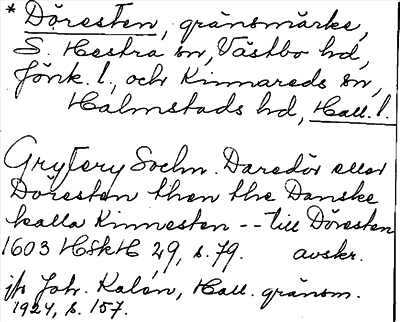 * Döresten, gränsmärke,
S. Hestra sn, Västbo hd,
Jönk. l., och Kinnareds sn,
Halmstads hd, Hall. l.
Gryttery Sochn. Daredör eller
Döresten then the Danske
kalla Kinnesten -- till Döresten
1603 HSkH 29, s. 79. avskr.
jfr Joh. Kalén, Hall. gränsm.
1924, s. 157.